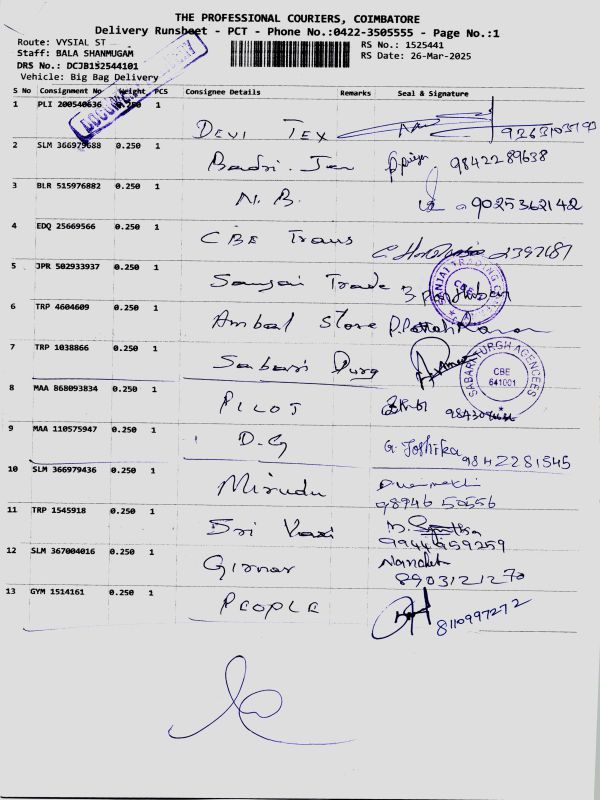 THE PROFESSIONAL COURIERS, COIMBATORE
Delivery Runsheet - PCT - Phone No.:0422-3505555 - Page No.:1
Route: VYSIAL ST
RS No.: 1525441
Staff: BALA SHANMUGAM
RS Date: 26-Mar-2025
DRS No.: DCJB152544101
Vehicle: Big Bag Delivery
S No Consignment No Weight PCS Consignee Details Remarks Seal & Signature
1 PLI 200540636 0.250 1
DEVI TEX
2 SLM 366979688 0.250 1
Badri. 98422 89638
3 BLR 515976882 0.250 1
N. B. 9025362142
4 EDQ 25669566 0.250 1
CBE Trans
5 JPR 502933937 0.250 1
Sanjai Trade
SANJAI TRADING CBE
6 TRP 4604609 0.250 1
Ambal Store
7 TRP 1038866 0.250 1
Sabari Durg
SABARI TURGH AGENCEES
CBE
641001
8 MAA 868093834 0.250 1
PILOT
9 MAA 110575947 0.250 1
D.G G. Joshika 9842281545
10 SLM 366979436 0.250 1
Mirudu
98946 50556
11 TRP 1545918 0.250 1
Sri
9944959259
12 SLM 367004016 0.250 1
Girnar
8903121270
13 GYM 1514161 0.250 1
PEOPLE 8110997272